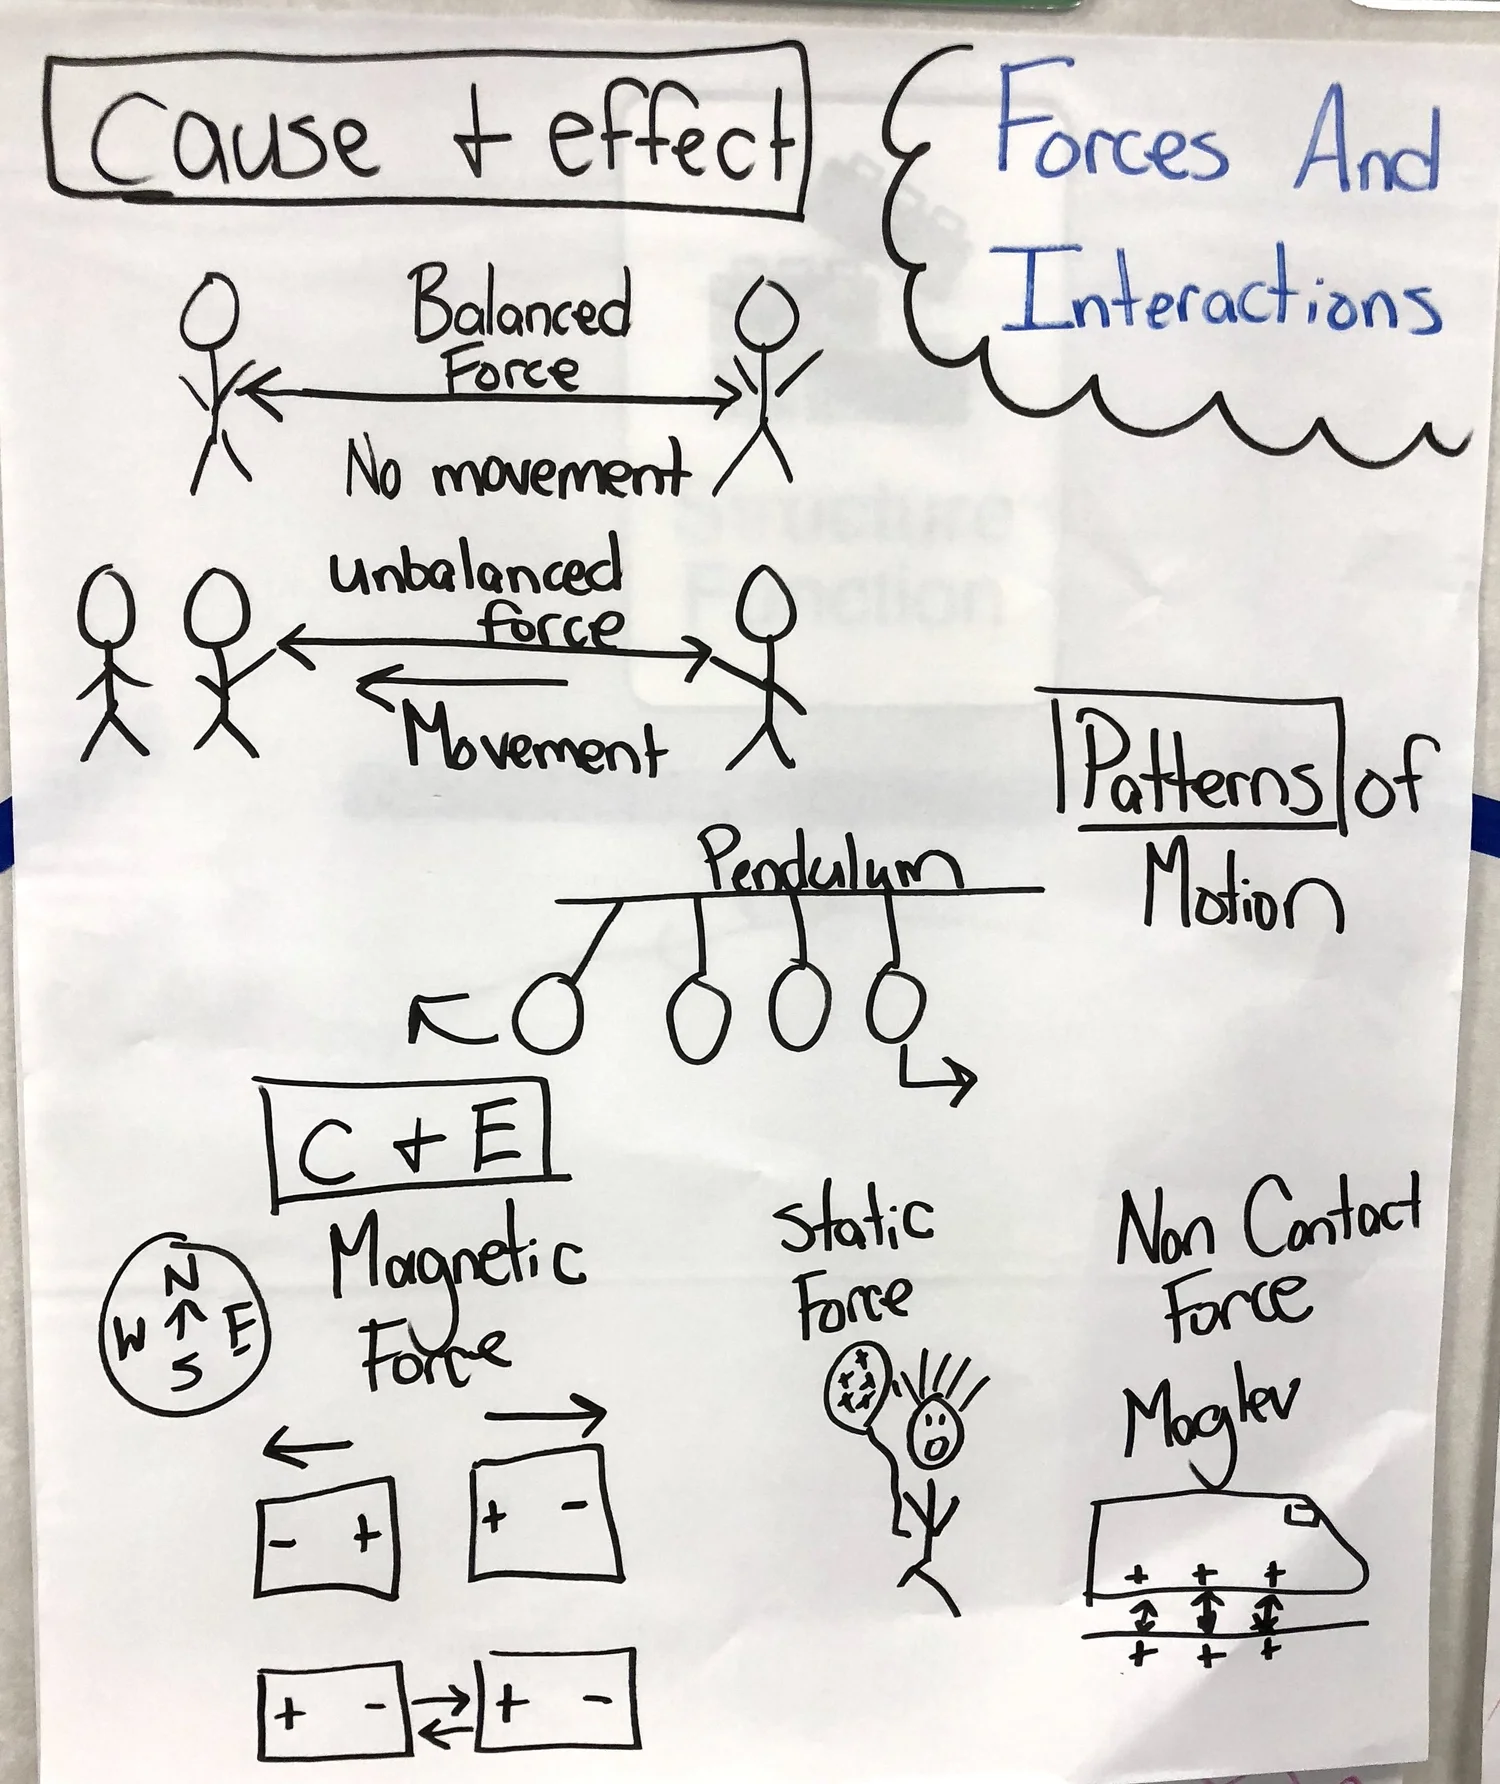 Cause + effect
Forces And
Interactions
Balanced
Force
No movement
unbalanced
force
Movement
Patterns of
Motion
Pendulum
C + E
Magnetic
Force
N
W E
S
Static
Force
Non Contact
Force
Maglev
- +
+ -
+ -
+ -
+
+ +
+ +
+ + +
+ + +
Structure
Function